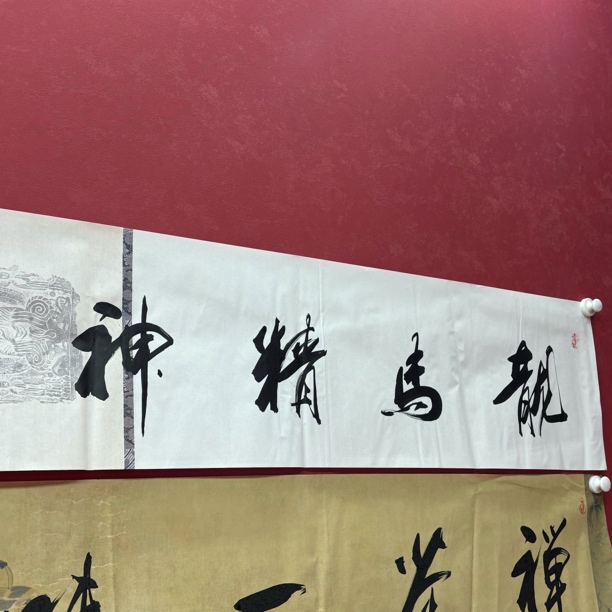 龍馬精神
禪茶一味